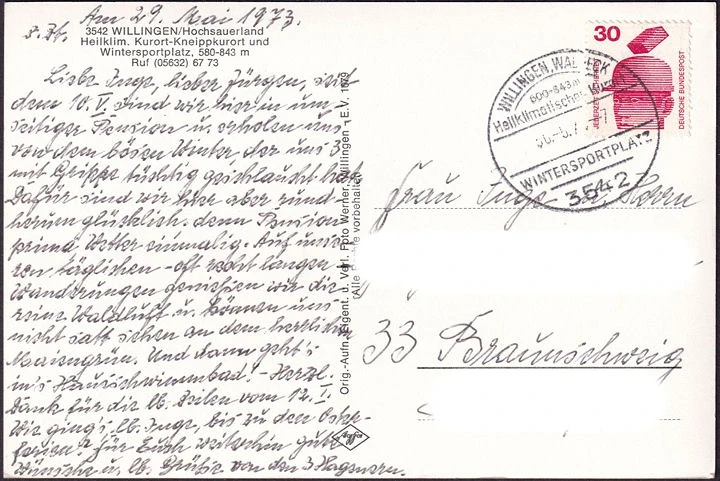 Am 29. Mai 1973.
3542 WILLINGEN/Hochsauerland
Heilklim. Kurort-Kneippkurort und
Wintersportplatz, 580-843 m
Ruf (05632) 67 73
Liebe Inge, lieber Jürgen, seit
dem 10. V. sind wir hier in
seitiger Pension u. erholen uns
von dem bösen Winter, der uns 3
mit Grippe tüchtig geschlaucht hat.
Dafür sind wir hier aber rund-
herum glücklich, denn Pension
prima Wetter einmalig. Auf unse-
ren täglichen - oft recht langen -
Wanderungen genießen wir die
reine Waldluft u. können uns
nicht satt sehen an dem herrlichen
Maiengrün. Und dann geht's
ins Hausschwimmbad! - Herzl.
Dank für die lb. Zeilen vom 12. I.
Wie ging's, lb. Inge, bis zu den Oster-
ferien? Für Euch weiterhin gute
Wünsche u. lb. Grüße von den 3
Orig.-Aufn., Eigent. u. Verl. Foto Werner, Willingen - E.V. 1079
(Alle Rechte vorbehalten)
30
JEDERZEIT SICHERHEIT
DEUTSCHE BUNDESPOST
WILLINGEN, WALDECK
600-843 m
Heilklimatischer Kurort
WINTERSPORTPLATZ
3542
Frau Inge Herrn
33 Braunschweig